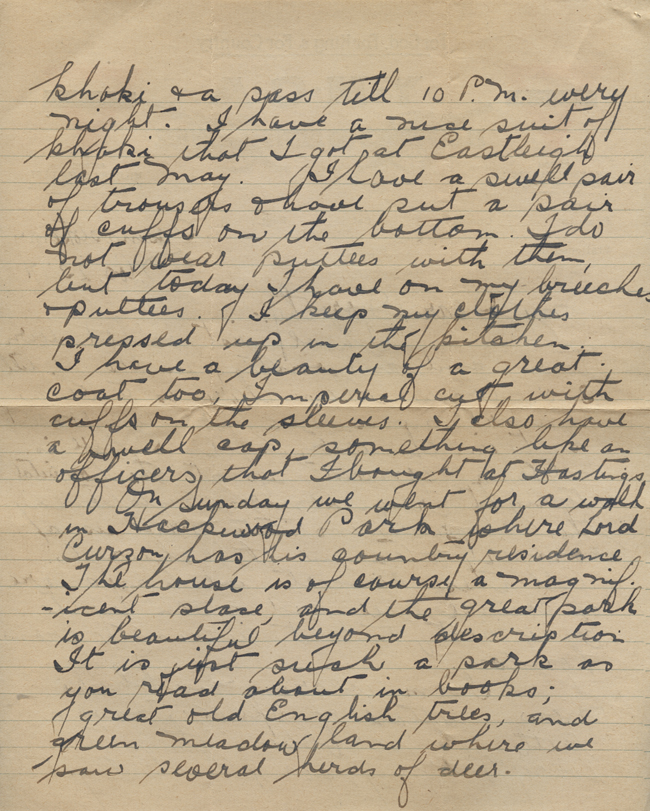 khaki & a pass till 10 P.M. every
night. I have a nice suit of
khaki that I got at Eastleigh
last May. I have a swell pair
of trousers & have put a pair
of cuffs on the bottom. I do
not wear puttees with them,
but today I have on my breeches
& puttees. I keep my clothes
pressed up in the kitchen.
I have a beauty of a great
coat too, Imperial cut with
cuffs on the sleeves. I also have
a swell cap, something like an
officers, that I bought at Hastings
On Sunday we went for a walk
in Hackwood Park where Lord
Curzon has his country residence
The house is of course a magnif.
-icent place, and the great park
is beautiful beyond description
It is just such a park as
you read about in books;
great old English trees, and
green meadow land where we
saw several herds of deer.